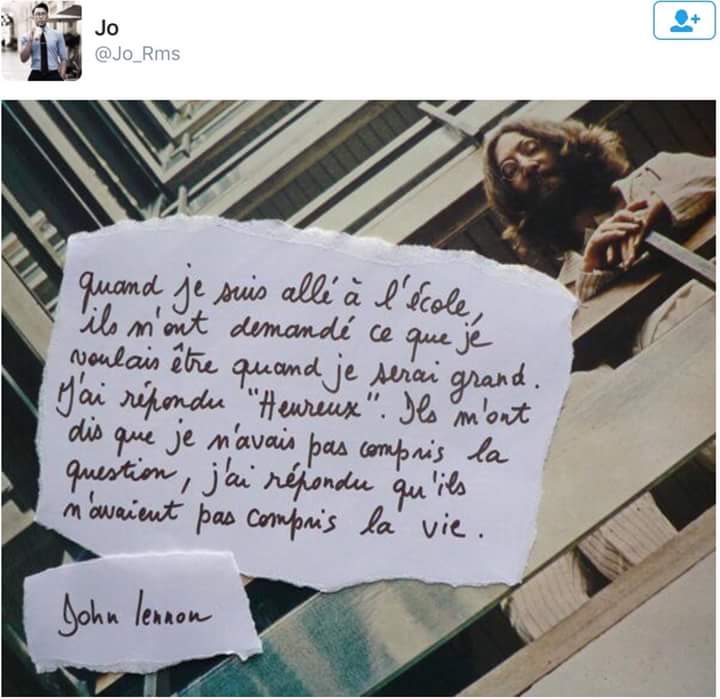 Jo
@Jo_Rms
quand je suis allé à l'école,
ils m'ont demandé ce que je
voulais être quand je serai grand.
J'ai répondu "Heureux". Ils m'ont
dis que je n'avais pas compris la
question, j'ai répondu qu'ils
n'avaient pas compris la vie.
John lennon